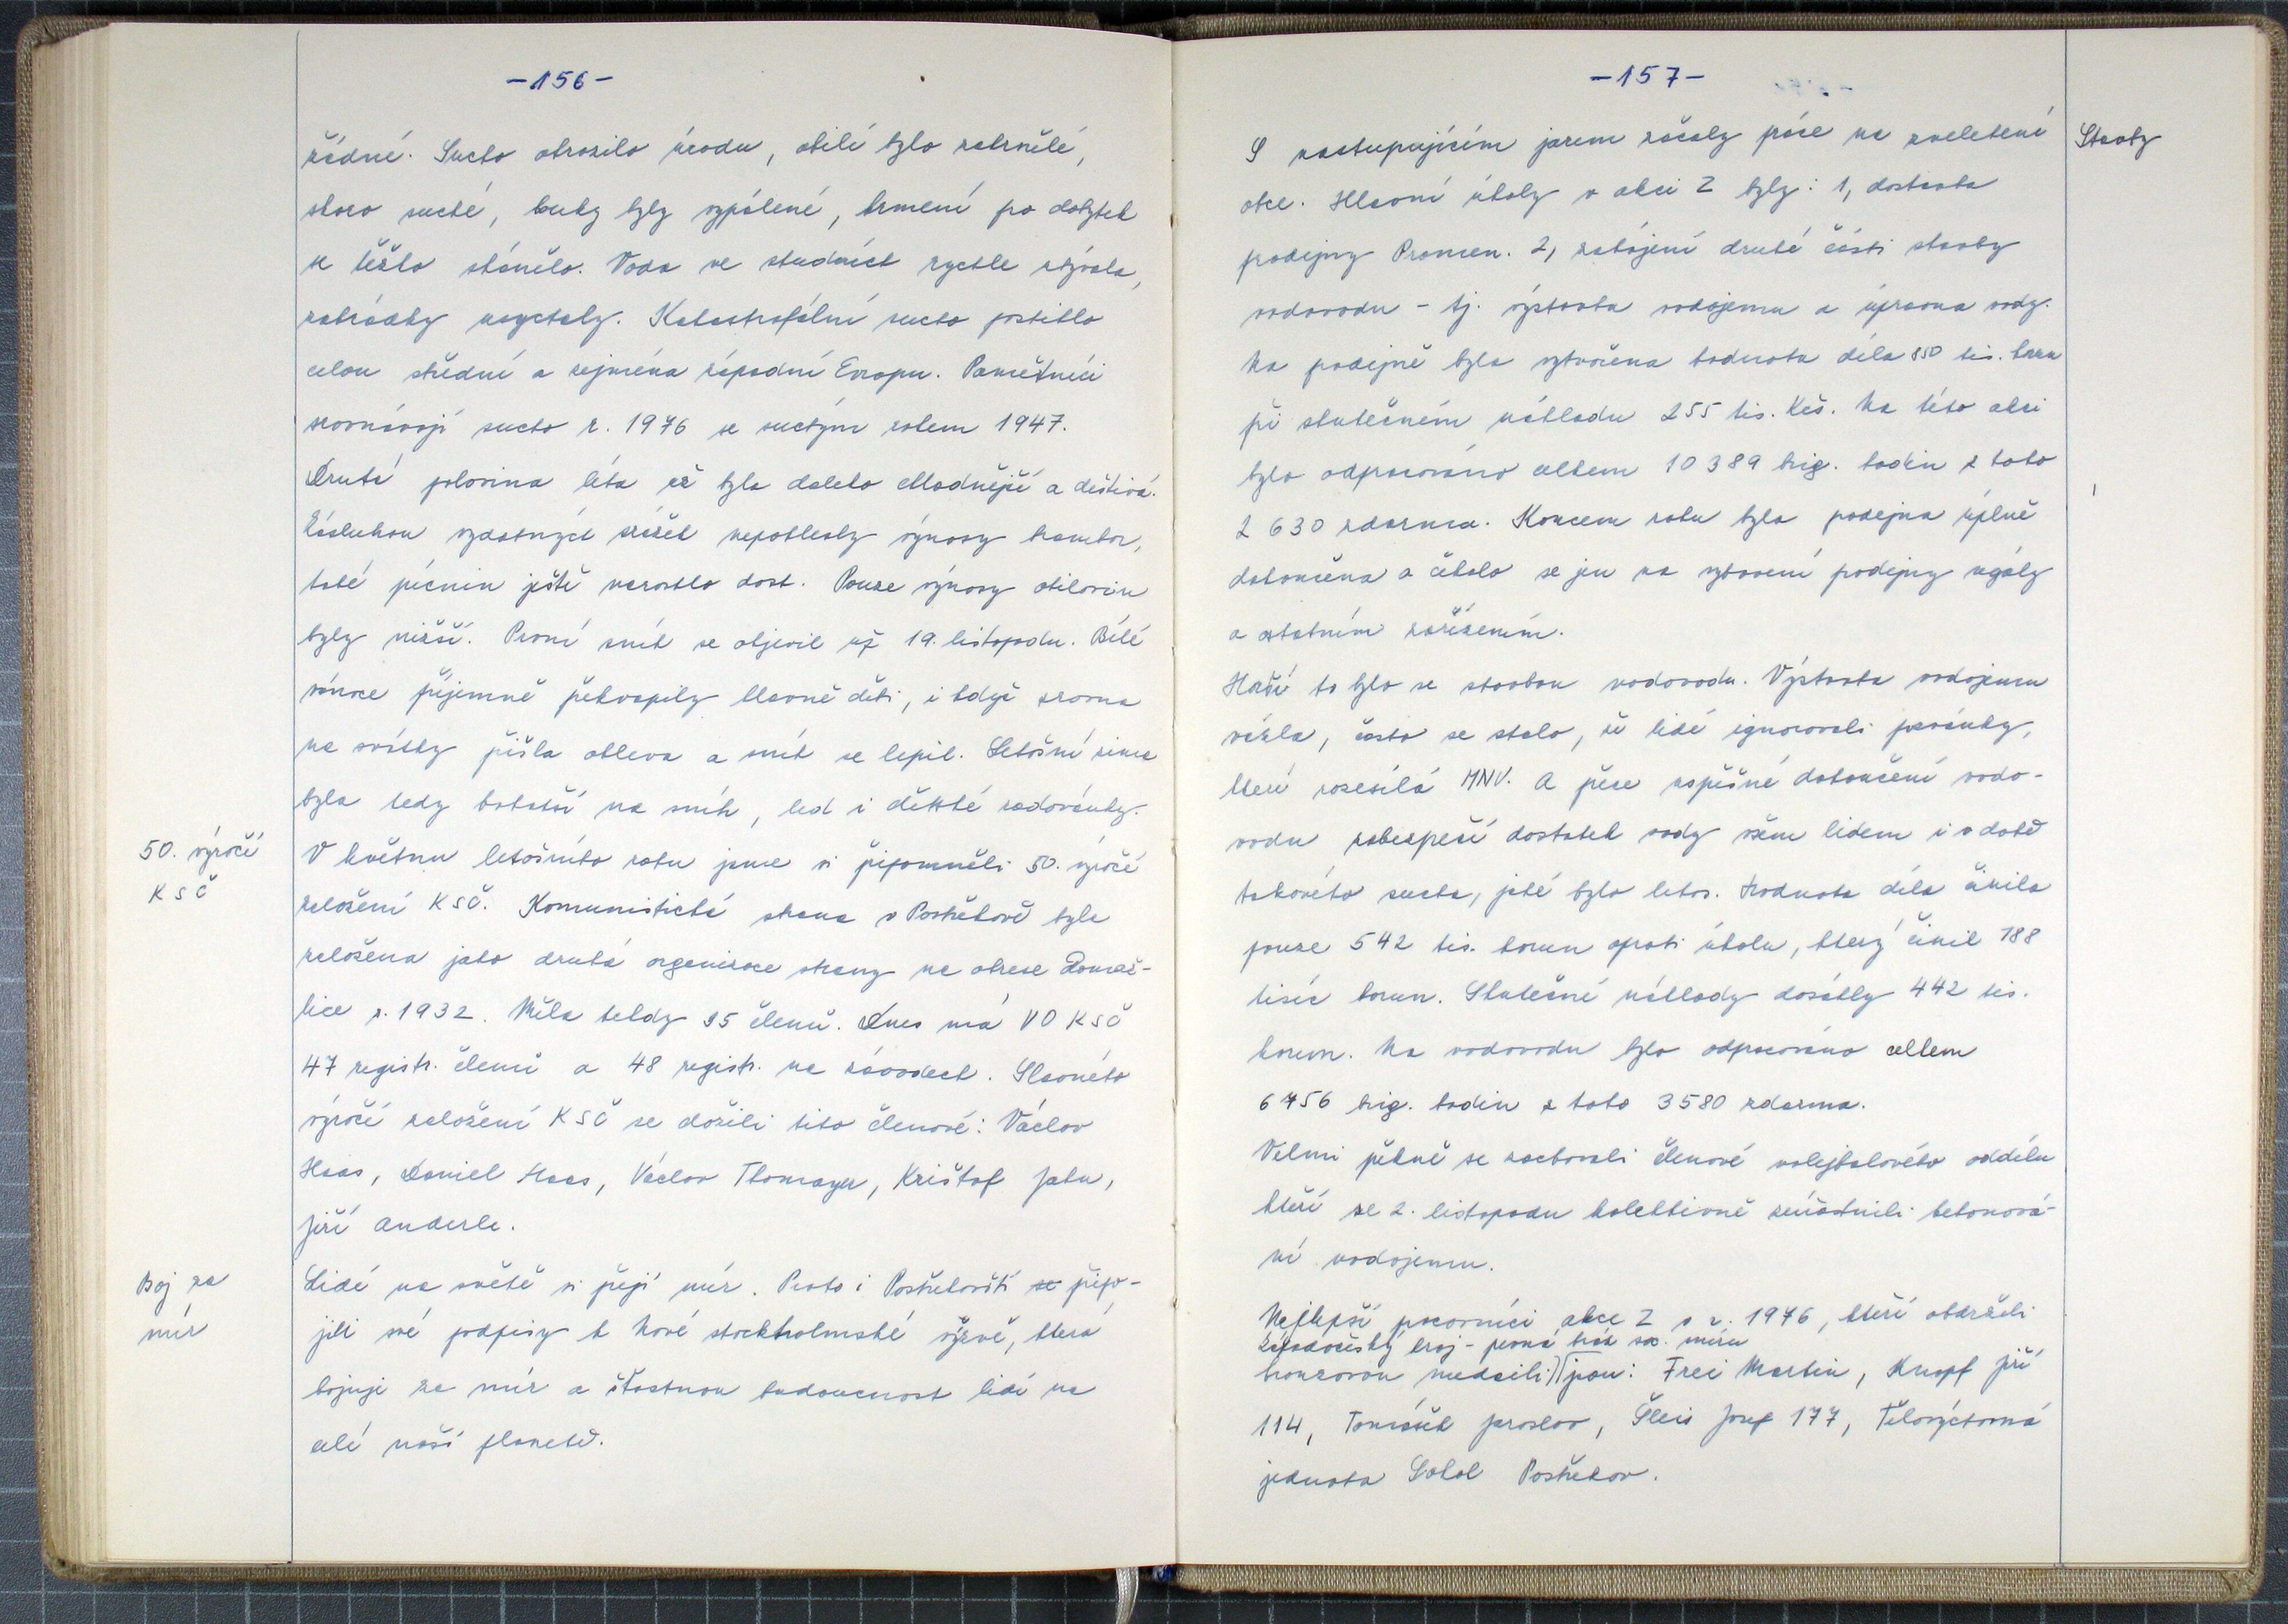 -156-
žádné. Sucho ohrozilo úrodu, obilí bylo zakrnělé,
skoro suché, louky byly vypálené, krmení po dobytek
se těžko shánělo. Voda ve studních rychle ubývala,
zahrádky usychaly. Katastrofální sucho postihlo
celou střední a zejména západní Evropu. Pamětníci
srovnávají sucho r. 1976 se suchým rokem 1947.
Druhá polovina léta už byla daleko chladnější a deštivá.
Zásluhou vydatných srážek nepoklesly výnosy brambor,
také pícnin ještě narostlo dost. Pouze výnosy obilovin
byly nižší. První sníh se objevil už 19. listopadu. Bílé
vánoce příjemně překvapily hlavně děti, i když zrovna
na svátky přišla obleva a sníh se lepil. Letošní zima
byla tedy bohatší na sníh, led i dětské radovánky.
50. výročí
KSČ
V květnu letošního roku jsme si připomněli 50. výročí
založení KSČ. Komunistická strana v Postřekově byla
založena jako druhá organizace strany na okrese Domaž-
lice r. 1932. Měla tehdy 35 členů. Dnes má VO KSČ
47 registr. členů a 48 registr. na závodech. Slavného
výročí založení KSČ se dožili tito členové: Václav
Haas, Daniel Haas, Václav Thomayer, Krištof Jaku,
Jiří Anderle.
Boj za
mír
Lidé na světě si přejí mír. Proto i Postřekovští se připo-
jili své podpisy k Nové stockholmské výzvě, která
bojuje za mír a šťastnou budoucnost lidí na
celé naší planetě.
-157-
Stavby
S nastupujícím jarem začaly práce na zvelebení
obce. Hlavní úkoly v akci Z byly: 1, dostavba
prodejny Pramen. 2, zahájení druhé části stavby
vodovodu - tj. výstavba vodojemu a úpravna vody.
Na prodejně byla vytvořena hodnota díla 850 tis. korun
při skutečném nákladu 255 tis. Kčs. Na této akci
bylo odpracováno celkem 10 389 brig. hodin z toho
2 630 zdarma. Koncem roku byla prodejna úplně
dokončena a čekalo se jen na vybavení prodejny regály
a ostatním zařízením.
Horší to bylo se stavbou vodovodu. Výstavba vodojemu
vázla, často se stalo, že lidé ignorovali pozvánky,
které rozesílá MNV. A přece úspěšné dokončení vodo-
vodu zabezpečí dostatek vody všem lidem i v době
takového sucha, jaké bylo letos. Hodnota díla činila
pouze 542 tis. korun oproti úkolu, který činil 788
tisíc korun. Skutečné náklady dosáhly 442 tis.
korun. Na vodovodu bylo odpracováno celkem
6 456 brig. hodin z toho 3 580 zdarma.
Velmi pěkně se zachovali členové volejbalového oddílu
kteří se 2. listopadu kolektivně zúčastnili betonová-
ní vodojemu.
Nejlepší pracovníci akce Z v r. 1976, kteří obdrželi
Západočeský kraj - pevná hráz soc. míru
bronzovou medaili) jsou: Frei Martin, Knopf Jiří
114, Tomášek Jaroslav, Šleis Josef 177, Tělovýchovná
jednota Sokol Postřekov.